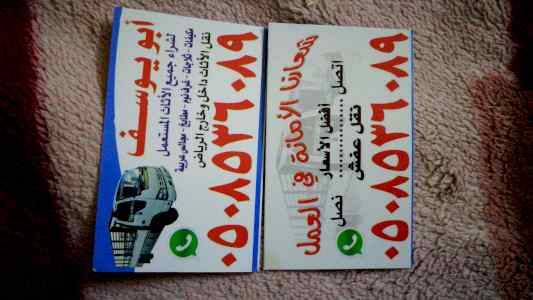 أبو يوسف
لشراء جميع الأثاث المستعمل
مكيفات - ثلاجات - غرف نوم - مطابخ - مجالس عربية
نقل الأثاث داخل وخارج الرياض
٠٥٠٨٥٣٦٠٨٩
شعارنا الأمانة في العمل
أفضل الأسعار
اتصل ............ نصل
نقل عفش
٠٥٠٨٥٣٦٠٨٩